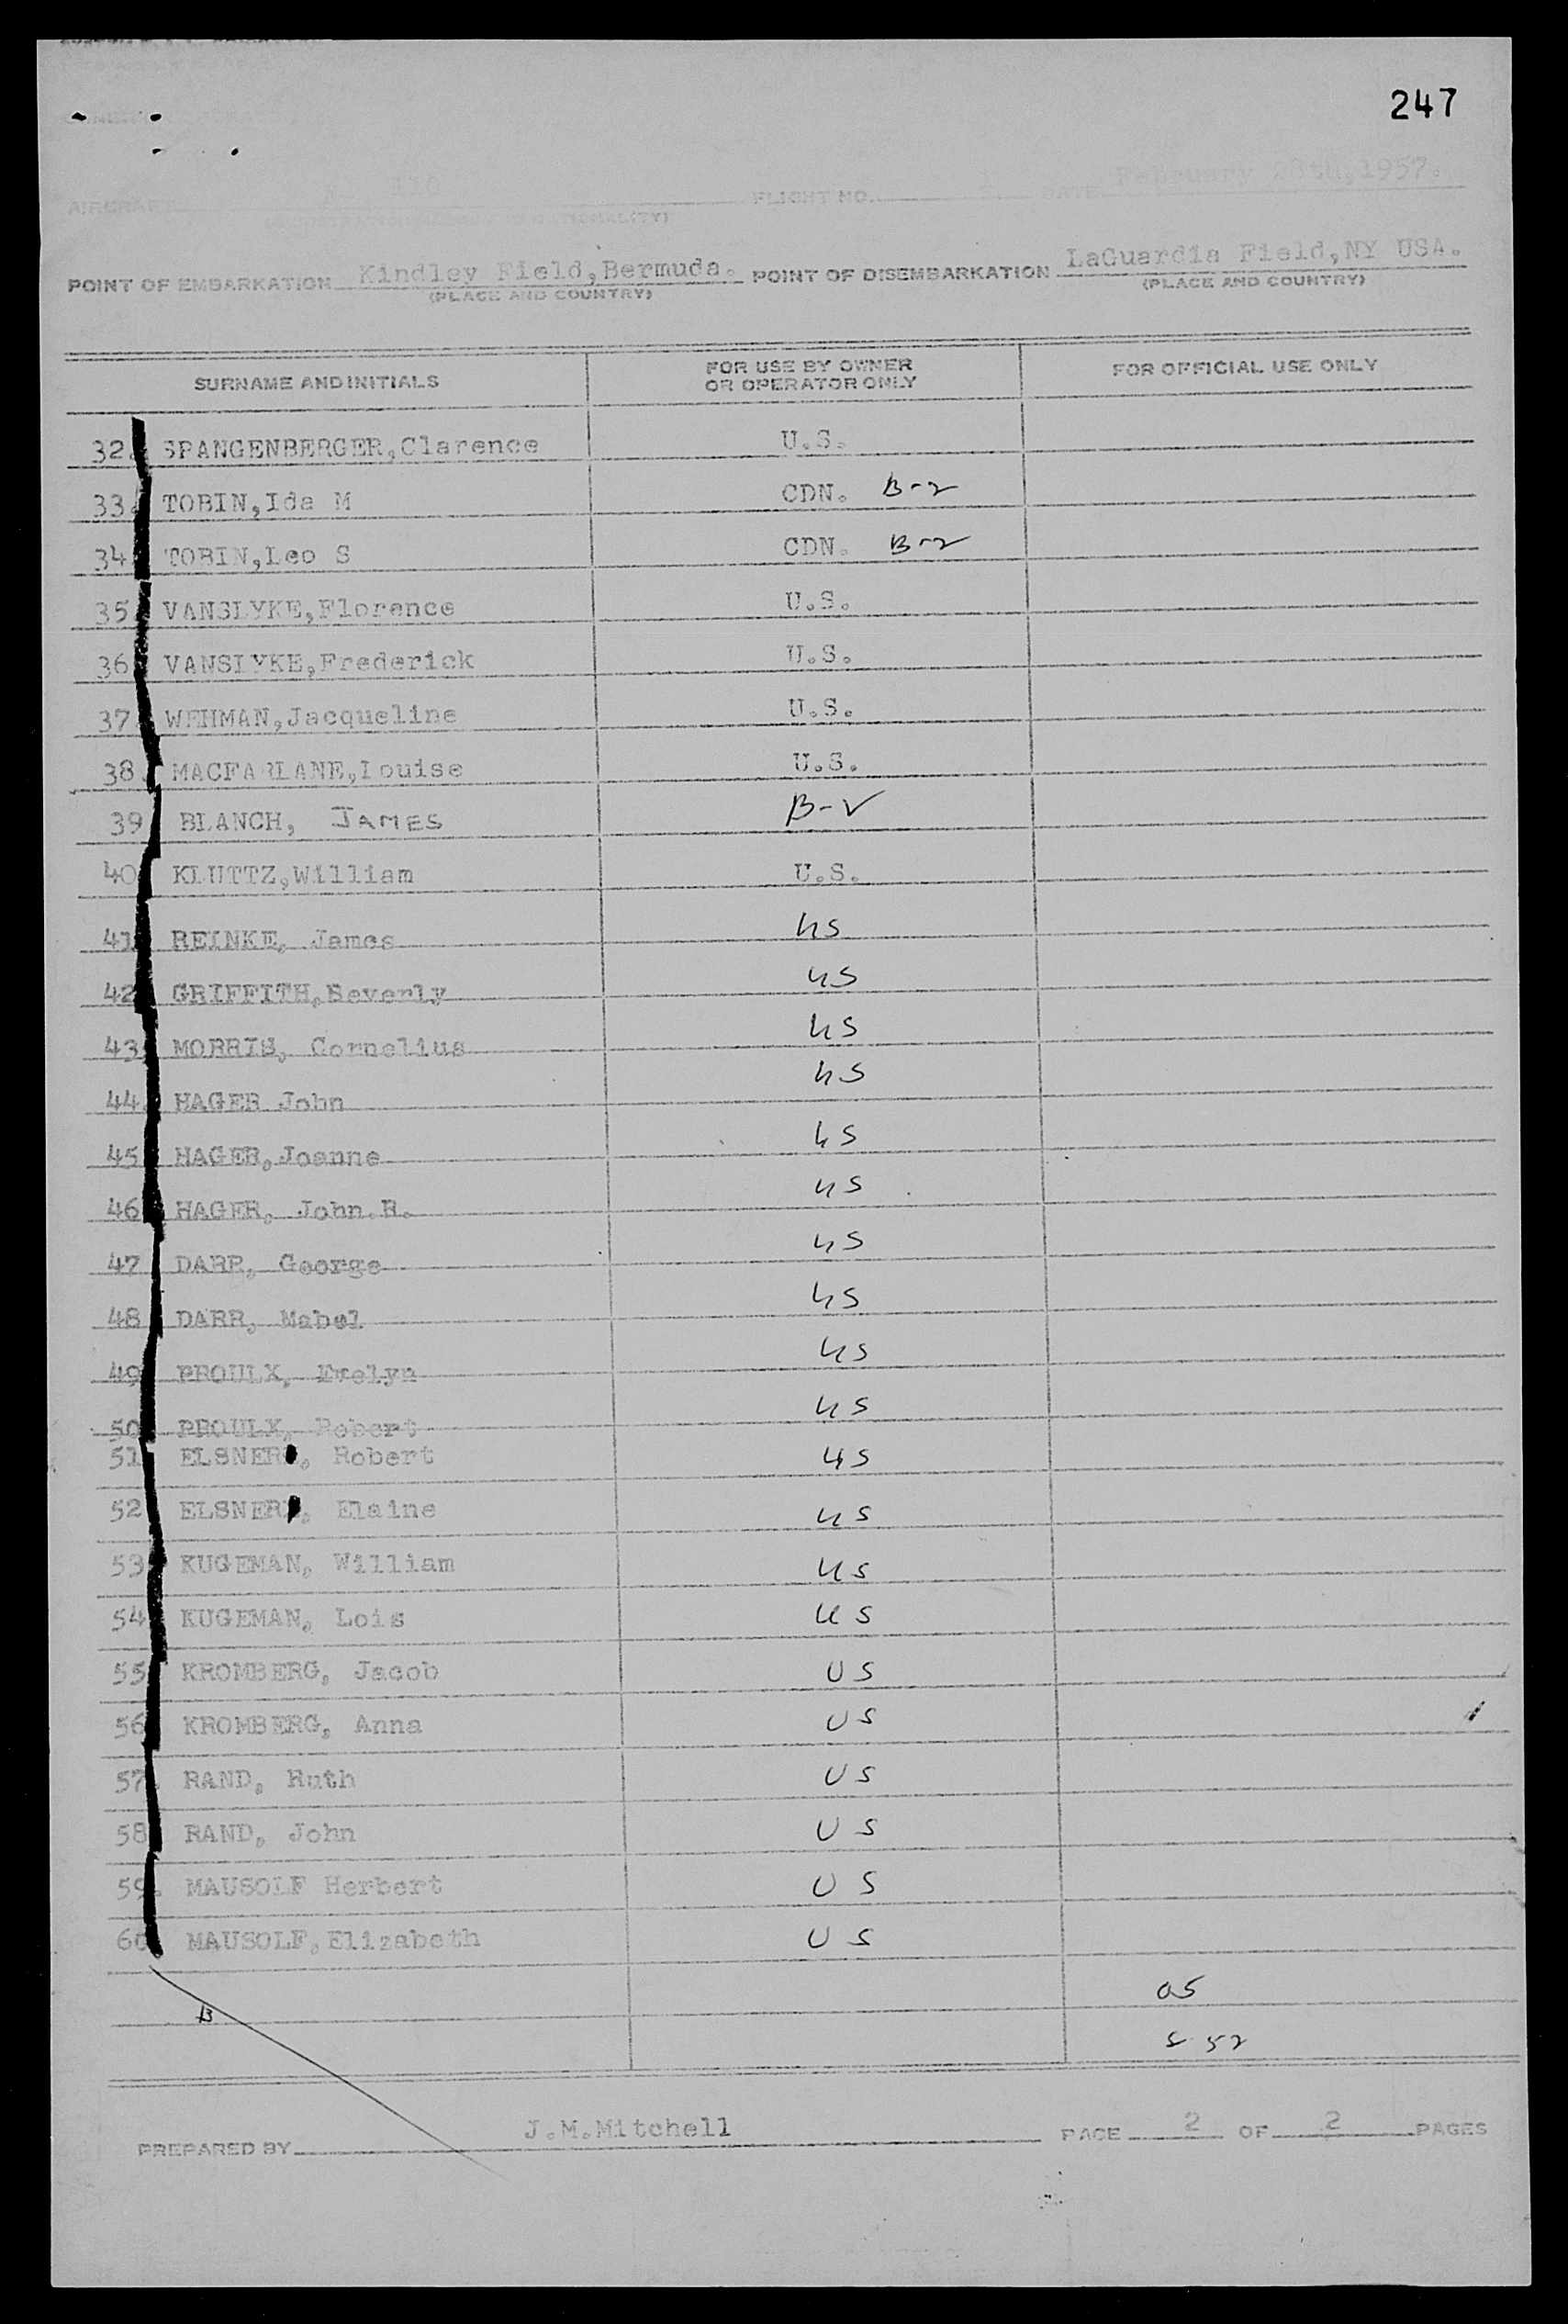 247
AIRCRAFT FLIGHT NO. DATE February 28th,1957.
POINT OF EMBARKATION Kindley Field,Bermuda. POINT OF DISEMBARKATION LaGuardia Field,NY USA.
(PLACE AND COUNTRY) (PLACE AND COUNTRY)
SURNAME AND INITIALS FOR USE BY OWNER OR OPERATOR ONLY FOR OFFICIAL USE ONLY
32. SPANGENBERGER,Clarence U.S.
33. TOBIN,Ida M CDN. B-2
34 TOBIN,Leo S CDN. B-2
35 VANSLYKE,Florence U.S.
36 VANSLYKE,Frederick U.S.
37 WEHMAN,Jacqueline U.S.
38. MACFARLANE,Louise U.S.
39 BLANCH, JAMES B-V
40 KLUTTZ,William U.S.
41 REINKE, James US
42 GRIFFITH,Beverly US
43 MORRIS, Cornelius US
44. HAGER John US
45 HAGER,Joanne US
46 HAGER, John.R. US
47 DARR, George US
48 DARR, Mabel US
49 PROULX, Evelyn US
50 PROULX, Robert US
51 ELSNER, Robert US
52 ELSNER, Elaine US
53 KUGEMAN, William US
54 KUGEMAN, Lois US
55 KROMBERG, Jacob US
56 KROMBERG, Anna US
57. RAND, Ruth US
58 RAND, John US
59. MAUSOLF Herbert US
60 MAUSOLF,Elizabeth US
B
PREPARED BY J.M.Mitchell PAGE 2 OF 2 PAGES